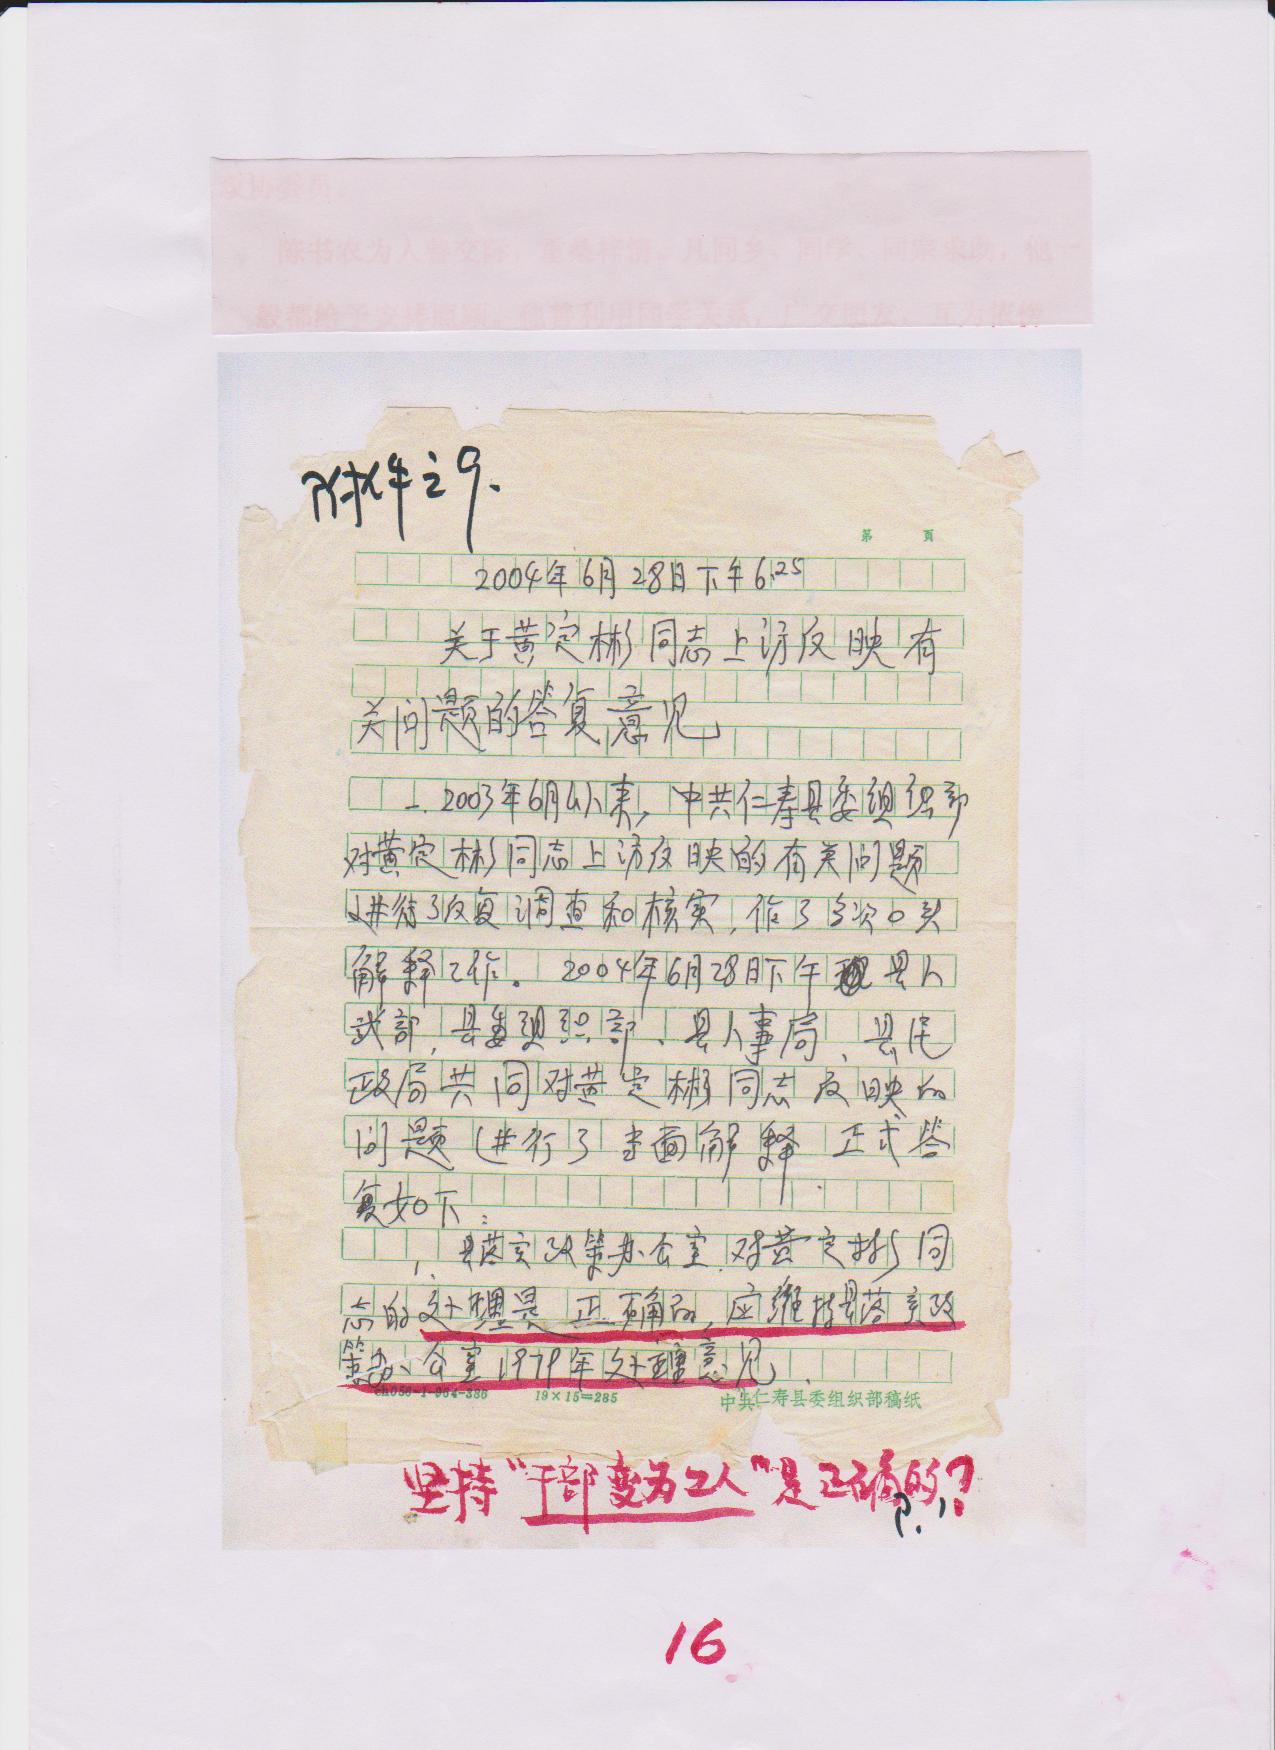 陈书农为人善交际，重桑梓情。凡同乡、同学、同宗求助，他一
附件之9.
第 页
2004年6月28日下午6:25
关于黄定彬同志上访反映有
关问题的答复意见
一.2003年6月以来,中共仁寿县委组织部
对黄定彬同志上访反映的有关问题
进行了反复调查和核实,作了多次口头
解释工作。2004年6月28日下午县人
武部,县委组织部、县人事局、县民
政局共同对黄定彬同志反映的
问题进行了当面解释.正式答
复如下:
1、县落实政策办公室对黄定彬同
志的处理是正确的,应维持县落实政
策办公室1979年处理意见.
ch056-1-984-386 19×15=285 中共仁寿县委组织部稿纸
坚持“干部变为工人”是正确的?
P.1
16